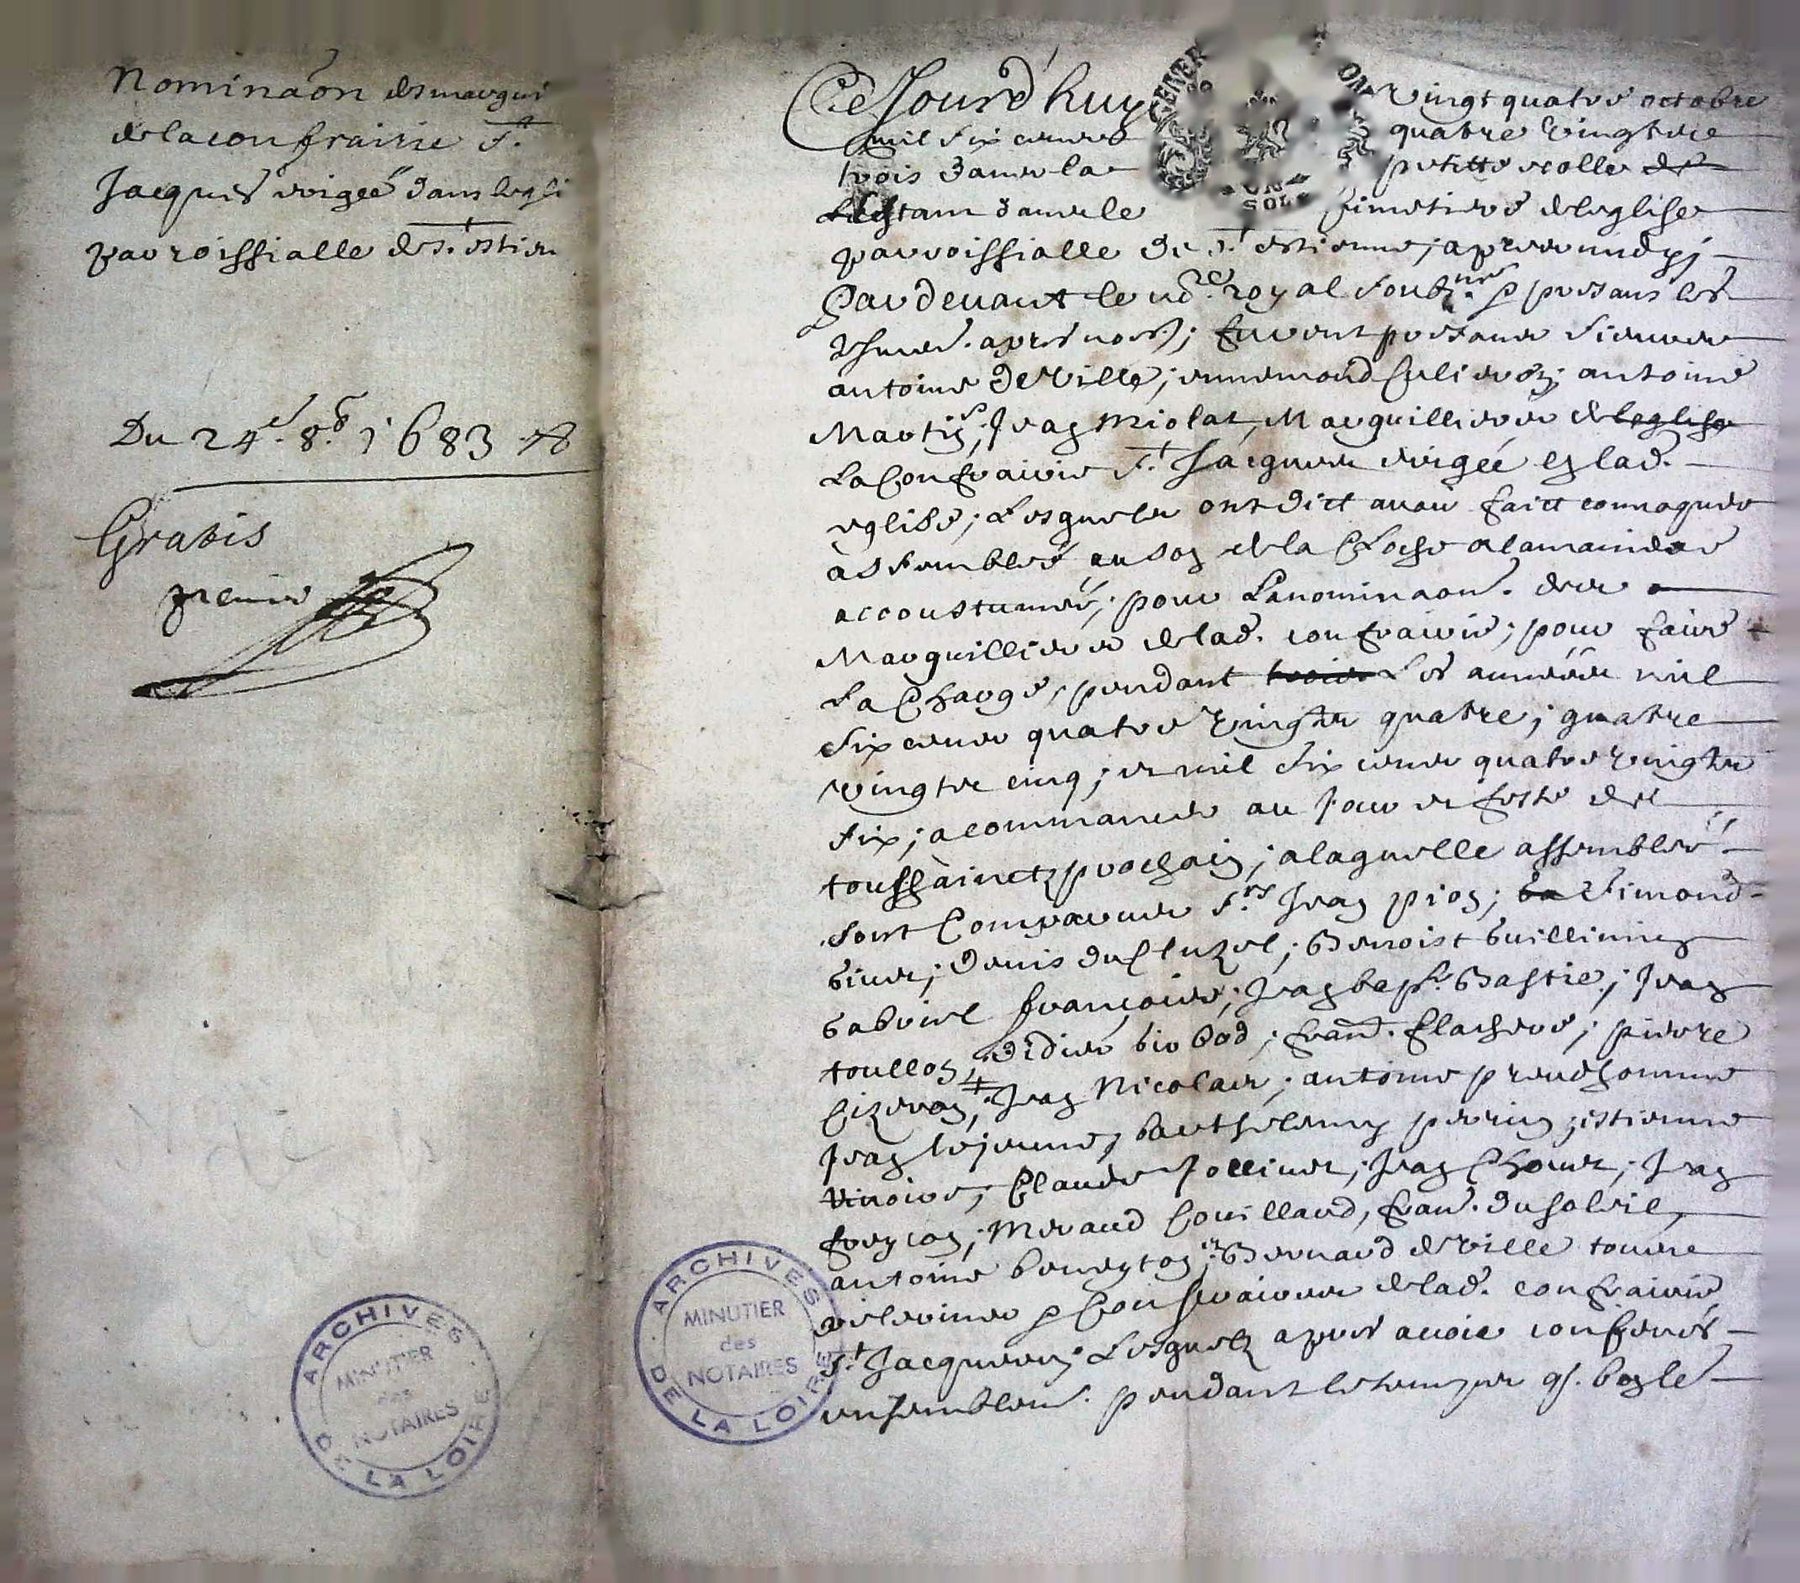 Nominaon des margui
de la confrairie St
Jacques erigée dans legli
parroissialle de St estien
Du 24e 8b 1683
Gratis
premier
Ce Jourd'huy vingt quatre octobre
mil six cents quatre vingts
trois dans la petitte escolle de
estant dans le simetiere de leglise
parroissialle de St estienne, apres midy
Pardevant le nore royal soubzné p presans les
apres nos; furent presans sieurs
antoine Deville; ennemond antoine
Martin; Jean Miolat, Marguilliers de leglise
La Confrairie St Jacques erigée en lad.
eglise; Lesquels ont dict avoir faict convoquer
assemblée au son de la Cloche a la maniere
accoustumée; pour La nominaon. des
Marguilliers de lad. confrairie; pour faire
La Charge, pendant trois Les années mil
six cents quatre vingts quatre; quatre
vingts cinq; et mil six cents quatre vingts
six; a commancer au jour et feste de
toussainctz prochain; a laquelle assemblée
sont Comparus Srs Jean pion; Simond
Denis du Cluzel; Benoist
Gabriel françois; Jean bapt. Bastie; Jean
toullon, Didier bobod; fran. flachere; pierre
Cizeron; Jean Nicolas; antoine preudhomme
Jean lejeune, barthelemy perrin; estienne
Claude Jollivet; Jean Jean
freycon; Meraud Couillaud, fran. du soleil,
antoine beneyton; et Bernard deville tous
p Confraires de lad. confrairie
St Jacques; Lesquelz apres avoir conferés
ensemblem. pendant le temps
GENER
SOLS
ARCHIVES DE LA LOIRE
MINUTIER
des
NOTAIRES
ARCHIVES DE LA LOIRE
MINUTIER
des
NOTAIRES